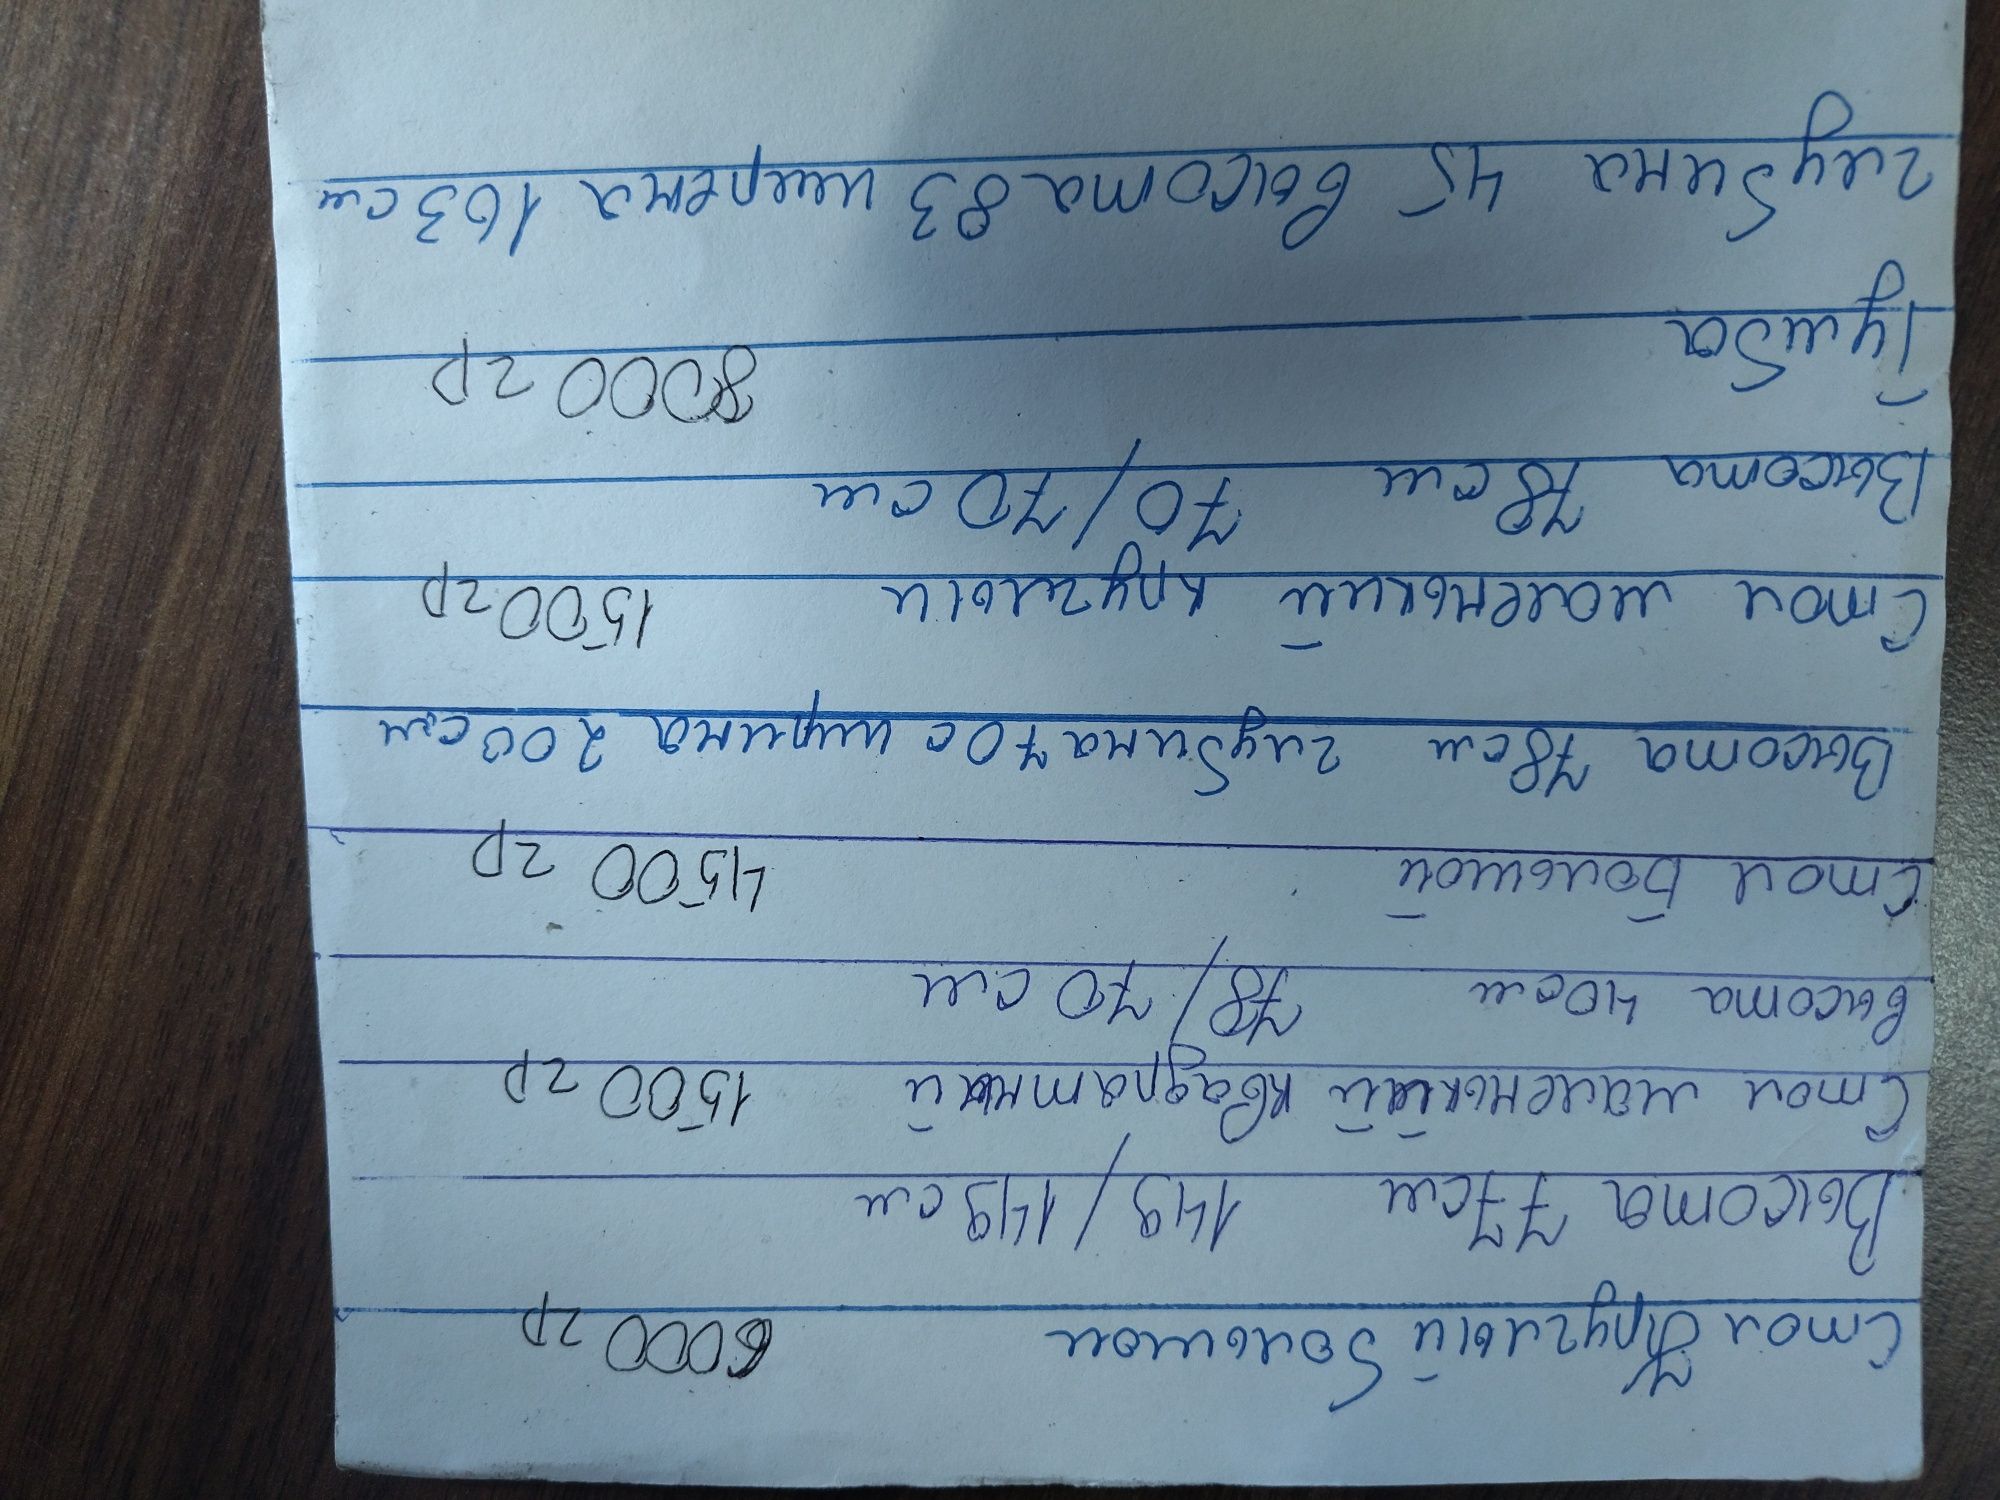 Стол Круглый большой 6000 гр
Высота 77см 149/149см
Стол маленький квадратный 1500 гр
высота 40см 78/70см
Стол Большой 4500 гр
Высота 78см глубина 70с ширина 200см
Стол маленький круглый 1500 гр
Высота 78см 70/70см
8000 гр
Тумба
глубина 45 высота 83 ширена 163см